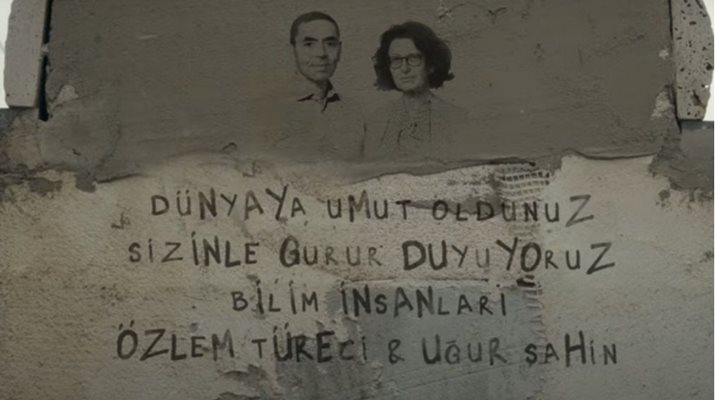 DÜNYAYA UMUT OLDUNUZ
SİZİNLE GURUR DUYUYORUZ
BİLİM İNSANLARI
ÖZLEM TÜRECİ & UĞUR ŞAHİN